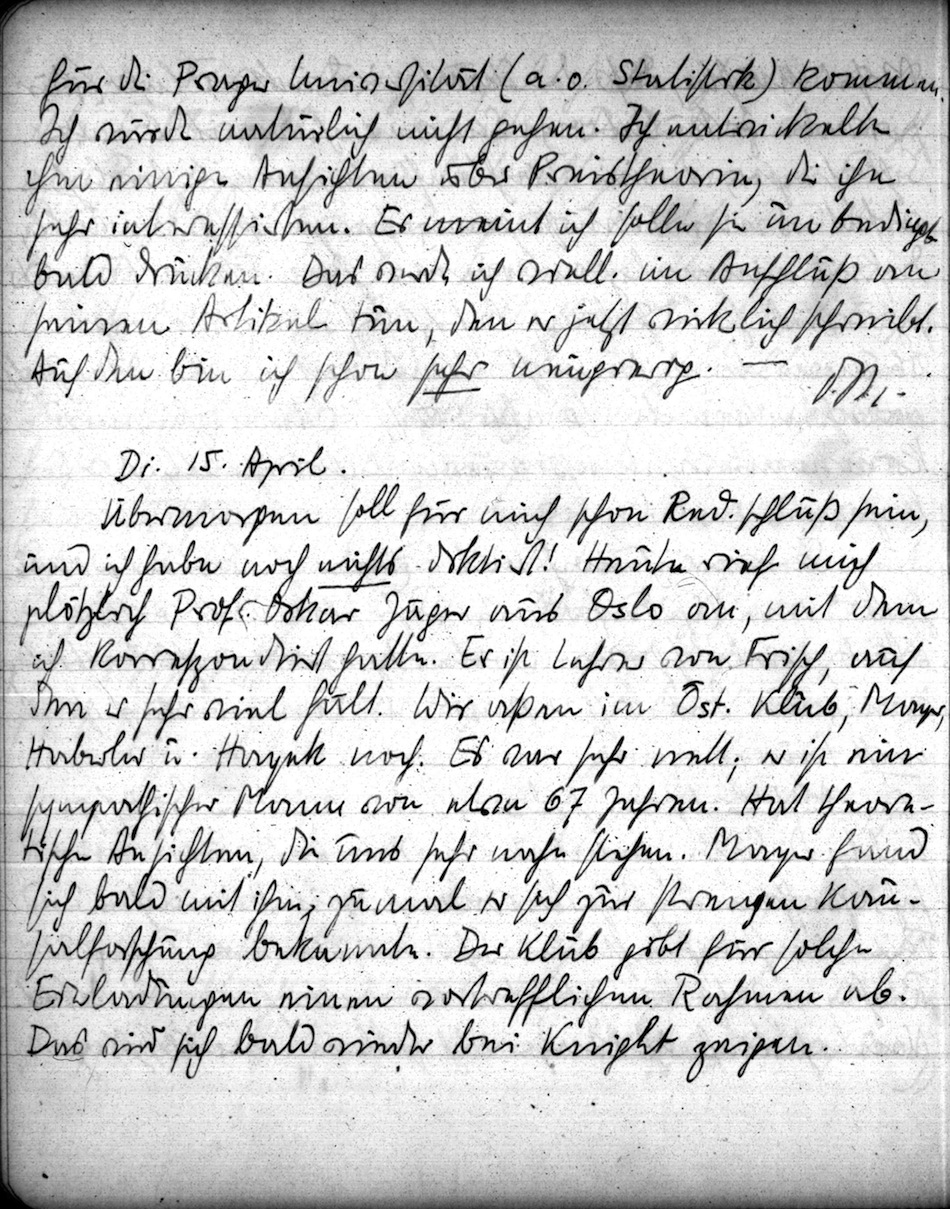 für die Prager Universität (a. o. Statistik) kommen.
Ich würde natürlich nicht gehen. Ich entwickelte
ihm einige Ansichten über Preistheorie, die ihn
sehr interessierten. Er meint ich solle sie unbedingt
bald drucken. Das werde ich viell. im Anschluß an
seinen Artikel tun, den er jetzt wirklich schreibt.
Auf den bin ich schon sehr neugierig. —
Di. 15. April.
Übermorgen soll für mich schon Red.schluß sein,
und ich habe noch nichts diktiert! Heute rief mich
plötzlich Prof. Oskar Jäger aus Oslo an, mit dem
ich korrespondiert hatte. Er ist Lehrer von Frisch, auf
den er sehr viel hält. Wir aßen im Öst. Klub, Mayer,
Haberler u. Hayek noch. Es war sehr nett; er ist ein
sympathischer Mann von etwa 67 Jahren. Hat theore-
tische Ansichten, die uns sehr nahe stehen. Mayer fand
sich bald mit ihm, zumal er sich zur strengen Kau-
salforschung bekannte. Der Klub gibt für solche
Einladungen einen vortrefflichen Rahmen ab.
Das wird sich bald wieder bei Knight zeigen.